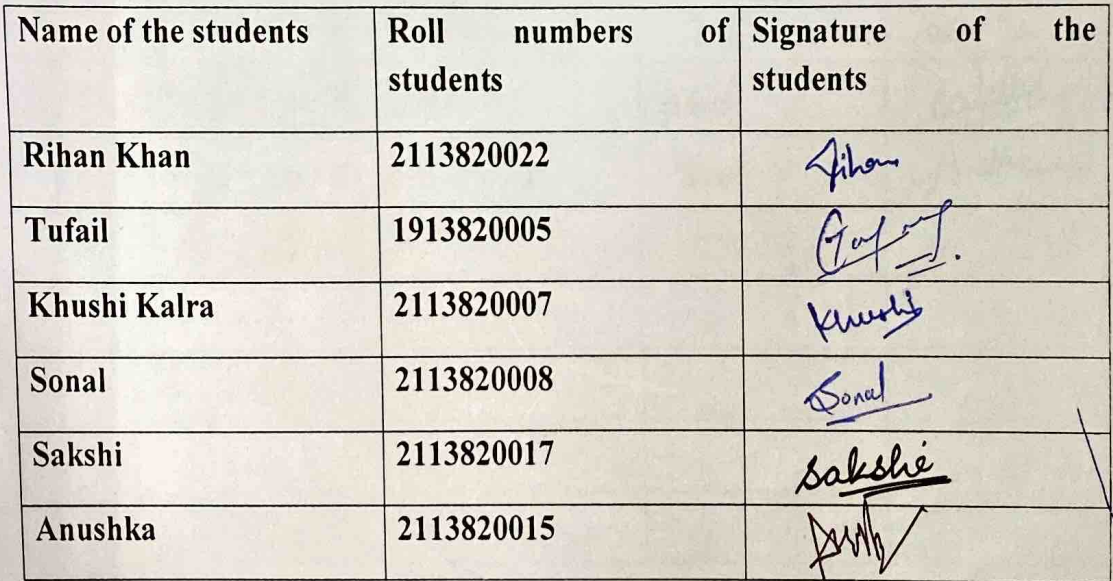 Name of the students Roll numbers of Signature of the
students students
Rihan Khan 2113820022 Rihan
Tufail 1913820005
Khushi Kalra 2113820007 Khushi
Sonal 2113820008 Sonal
Sakshi 2113820017 Sakshi
Anushka 2113820015